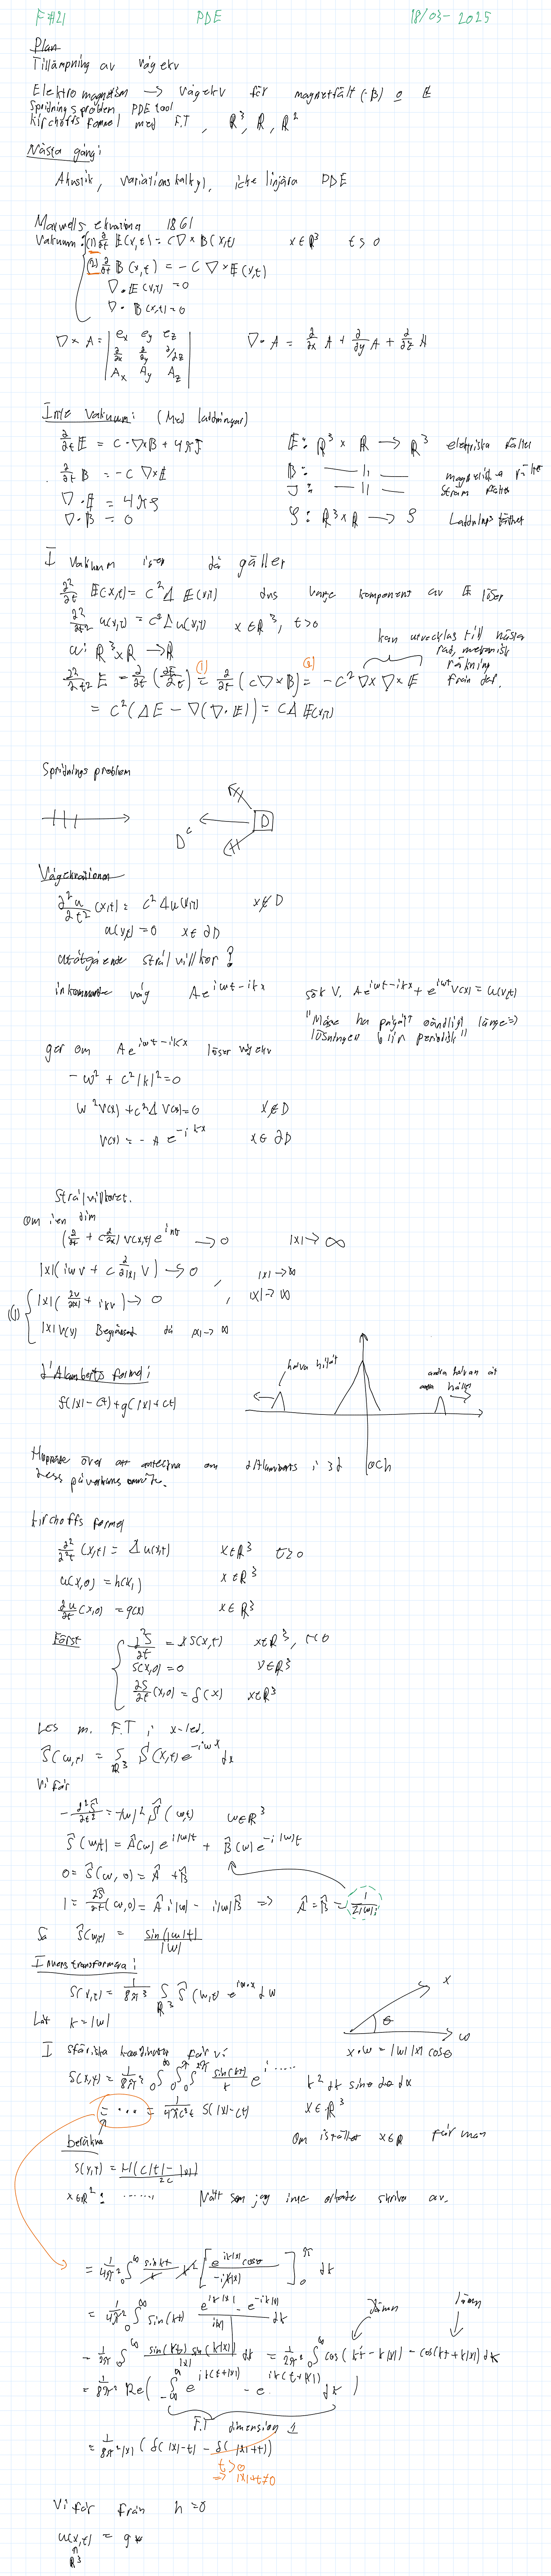 F#21 PDE 18/03-2025
Plan
Tillämpning av vågekv
Elektromagnetism → vågekv för magnetfält (B) o E
Spridningsproblem PDE tool
Kirchoffs formel med F.T, R³, R, R²
Nästa gång:
Akustik, variationskalkyl, icke linjära PDE
Maxwells ekvationer 1861
Vakuum: (1) ∂/∂t E(x,t) = C∇×B(x,t) x∈R³ t>0
(2) ∂/∂t B(x,t) = -C∇×E(x,t)
∇·E(x,t) = 0
∇·B(x,t) = 0
∇×A = | ex ey ez | ∇·A = ∂/∂x A + ∂/∂y A + ∂/∂z A
∂/∂x ∂/∂y ∂/∂z
Ax Ay Az
Inte vakuum: (Med laddningar)
∂/∂t E = C·∇×B + 4πJ E: R³×R → R³ elektriska fältet
∂/∂t B = -C∇×E B: —||— magnetiska fältet
∇·E = 4πρ J: —||— Ström fältet
∇·B = 0 ρ: R³×R → ρ Laddnings täthet
I vakuum då gäller
∂²/∂t E(x,t) = C²Δ E(x,t) dvs varje komponent av E löser
∂²/∂t² u(x,t) = c²Δu(x,t) x∈R³, t>0
u: R³×R → R
kan utvecklas till nästa rad, mekanisk räkning från def.
∂²/∂t² E = ∂/∂t (∂E/∂t) (1)= ∂/∂t (c∇×B) (2)= -C²∇×∇×E
= C²(ΔE - ∇(∇·E)) = CΔE(x,t)
Spridnings problem
D^c D
Vågekvationen
∂²u/∂t² (x,t) = c²Δu(x,t) x∉D
u(x,t) = 0 x∈∂D
utåtgående strålvillkor?
inkommande våg Ae^{iwt-ikx} sök V. Ae^{iwt-ikx} + e^{iwt}V(x) = u(x,t)
"Måste ha pågått oändligt länge ⇒ lösningen blir periodisk"
ger om Ae^{iwt-ikx} löser vågekv
-w² + c²|k|² = 0
w²V(x) + c²ΔV(x) = 0 x∉D
V(x) = -A e^{-ikx} x∈∂D
Strålvillkoret.
Om i en dim
(∂/∂t + c∂/∂x) V(x,t)e^{iwt} → 0 |x| → ∞
|x|(iwv + c ∂/∂|x| V) → 0, |x| → ∞
|x|(∂V/∂|x| + ikv) → 0, |x| → ∞
|x|V(x) Begränsad då |x| → ∞
d'Alamberts formel:
f(|x|-ct) + g(|x|+ct)
halva hållet
andra halvan åt andra hållet
Hoppade över att anteckna om d'Alamberts i 3d och
dess påverkans område.
Kirchoffs formel
∂²/∂²t (x,t) = Δu(x,t) x∈R³ t≥0
u(x,0) = h(x) x∈R³
∂u/∂t (x,0) = g(x) x∈R³
Först
∂²S/∂t = ΔS(x,t) x∈R³, t<0
S(x,0) = 0 x∈R³
∂S/∂t (x,0) = δ(x) x∈R³
Lös m. F.T i x-led.
Ŝ(w,t) = ∫_{R³} S(x,t)e^{-iwx} dx
Vi får
-∂²Ŝ/∂t² = -|w|²Ŝ(w,t) w∈R³
Ŝ(w,t) = Â(w)e^{i|w|t} + B̂(w)e^{-i|w|t}
0 = Ŝ(w,0) = Â + B̂
1 = ∂Ŝ/∂t (w,0) = Â i|w| - i|w|B̂ ⇒ Â = B̂ = 1/2|w|i
Så Ŝ(w,t) = sin(|w|t)/|w|
Inverstransformera:
S(x,t) = 1/8π³ ∫_{R³} Ŝ(w,t) e^{iw·x} dw
Låt k = |w| x·w = |w||x|cosθ
I sfäriska koordinater får vi
S(x,t) = 1/8π² ∫₀^∞ ∫₀^π ∫₀^{2π} sin(kt)/k e^{i·····} k² dk sinθ dθ dα
= ··· = 1/4πc²t δ(|x|-ct) x∈R³
beräkna Om istället x∈R får man
S(x,t) = H(c|t|-|x|)/2c
x∈R²: ······ Nått som jag inte orkade skriva av.
= 1/4π² ∫₀^∞ sin kt/k k² [e^{ik|x|cosθ}/-ik|x|]₀^π dk
= 1/4π² ∫₀^∞ sin(kt) e^{ik|x|} - e^{-ik|x|}/i|x| dk
jämn jämn
= 1/2π² ∫₀^∞ sin(kt)sin(k|x|)/|x| dk = 1/2π² ∫₀^∞ cos(kt-k|x|) - cos(kt+k|x|) dk
= 1/8π² Re( ∫_{-∞}^∞ e^{ik(t+|x|)} - e^{ik(t+|x|)} dk )
F.T dimension 1
= 1/8π²|x| (δ(|x|-t) - δ(|x|+t))
t>0
⇒ |x|+t≠0
Vi får från h=0
u(x,t) = g*
R³